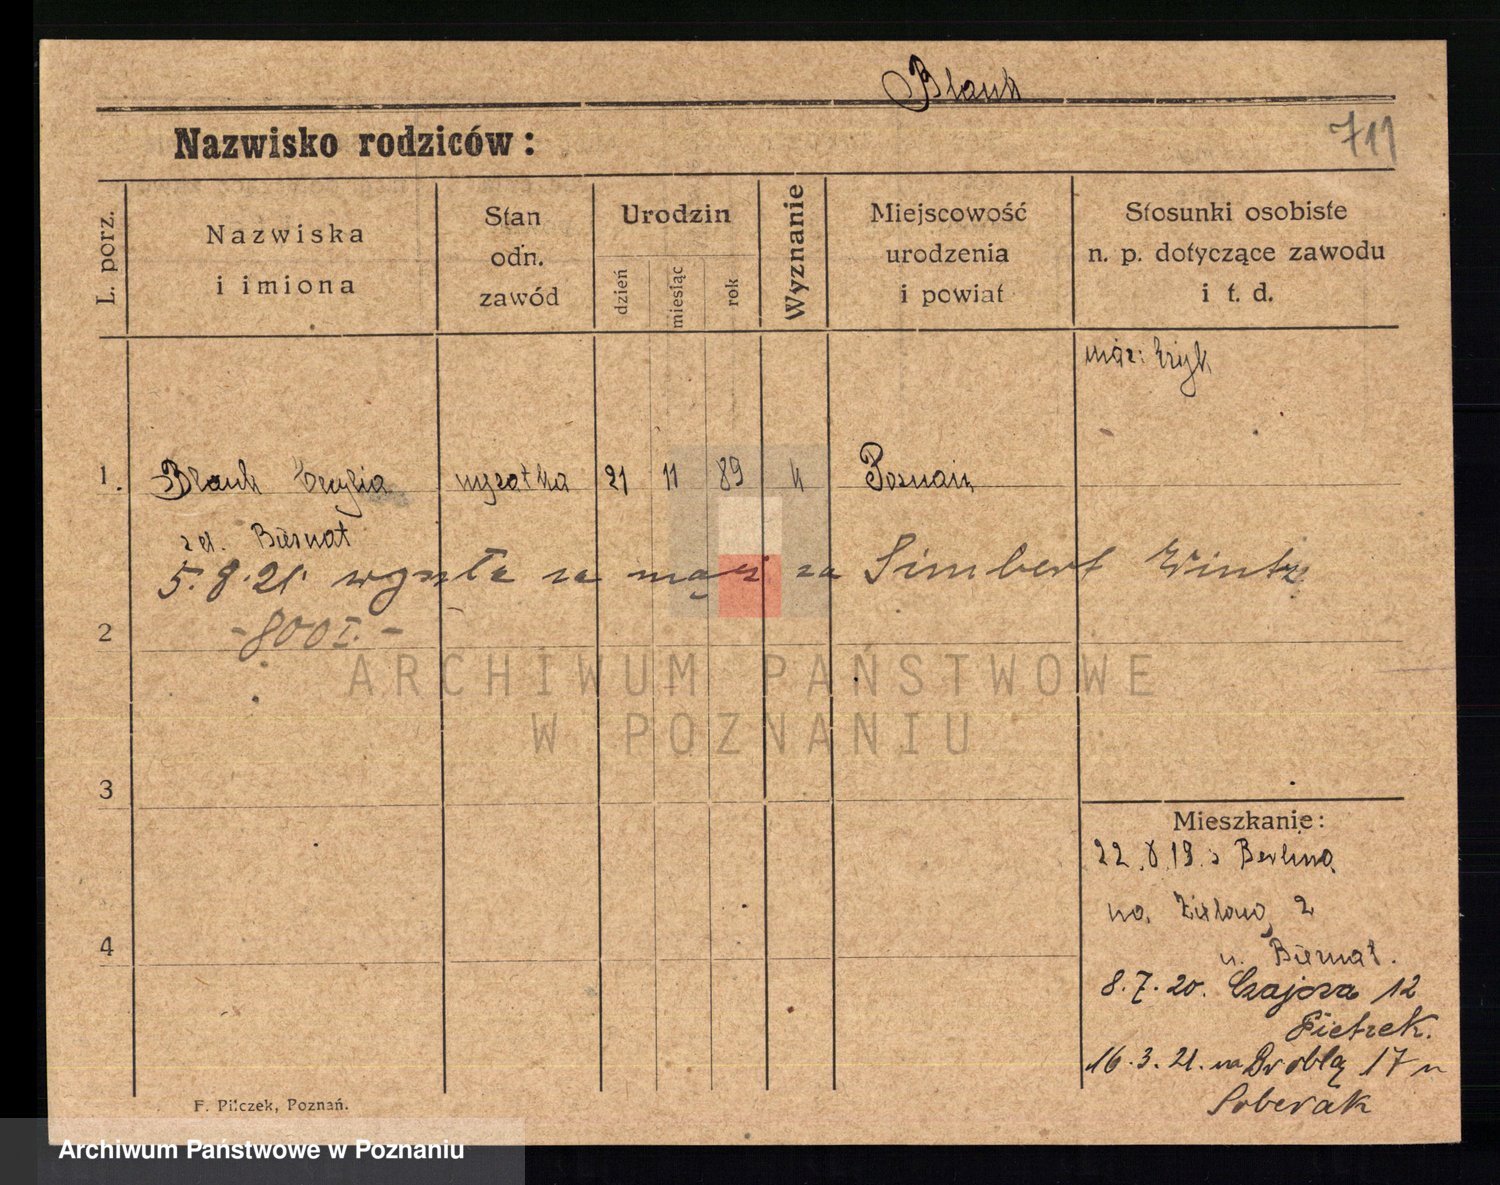 Blank
Nazwisko rodziców:
711
L. porz.
Nazwiska
i imiona
Stan
odn.
zawód
Urodzin
dzień
miesiąc
rok
Wyznanie
Miejscowość
urodzenia
i powiat
Stosunki osobiste
n. p. dotyczące zawodu
i t. d.
mąż: Eryk
1. Blank Cecylia 21 11 89 k Poznań
zd. Biernat
5.8.21. wyszła za mąż za Simbert Wintz
2
- 800 I. -
3
4
Mieszkanie:
22.X.19. z Berlina
na Zieloną 2
u. Biernat.
8.7.20. Czajcza 12
Pietrek.
16.3.21. na Droblą 17 u
Soberak
F. Pilczek, Poznań.
ARCHIWUM PAŃSTWOWE
W POZNANIU
Archiwum Państwowe w Poznaniu